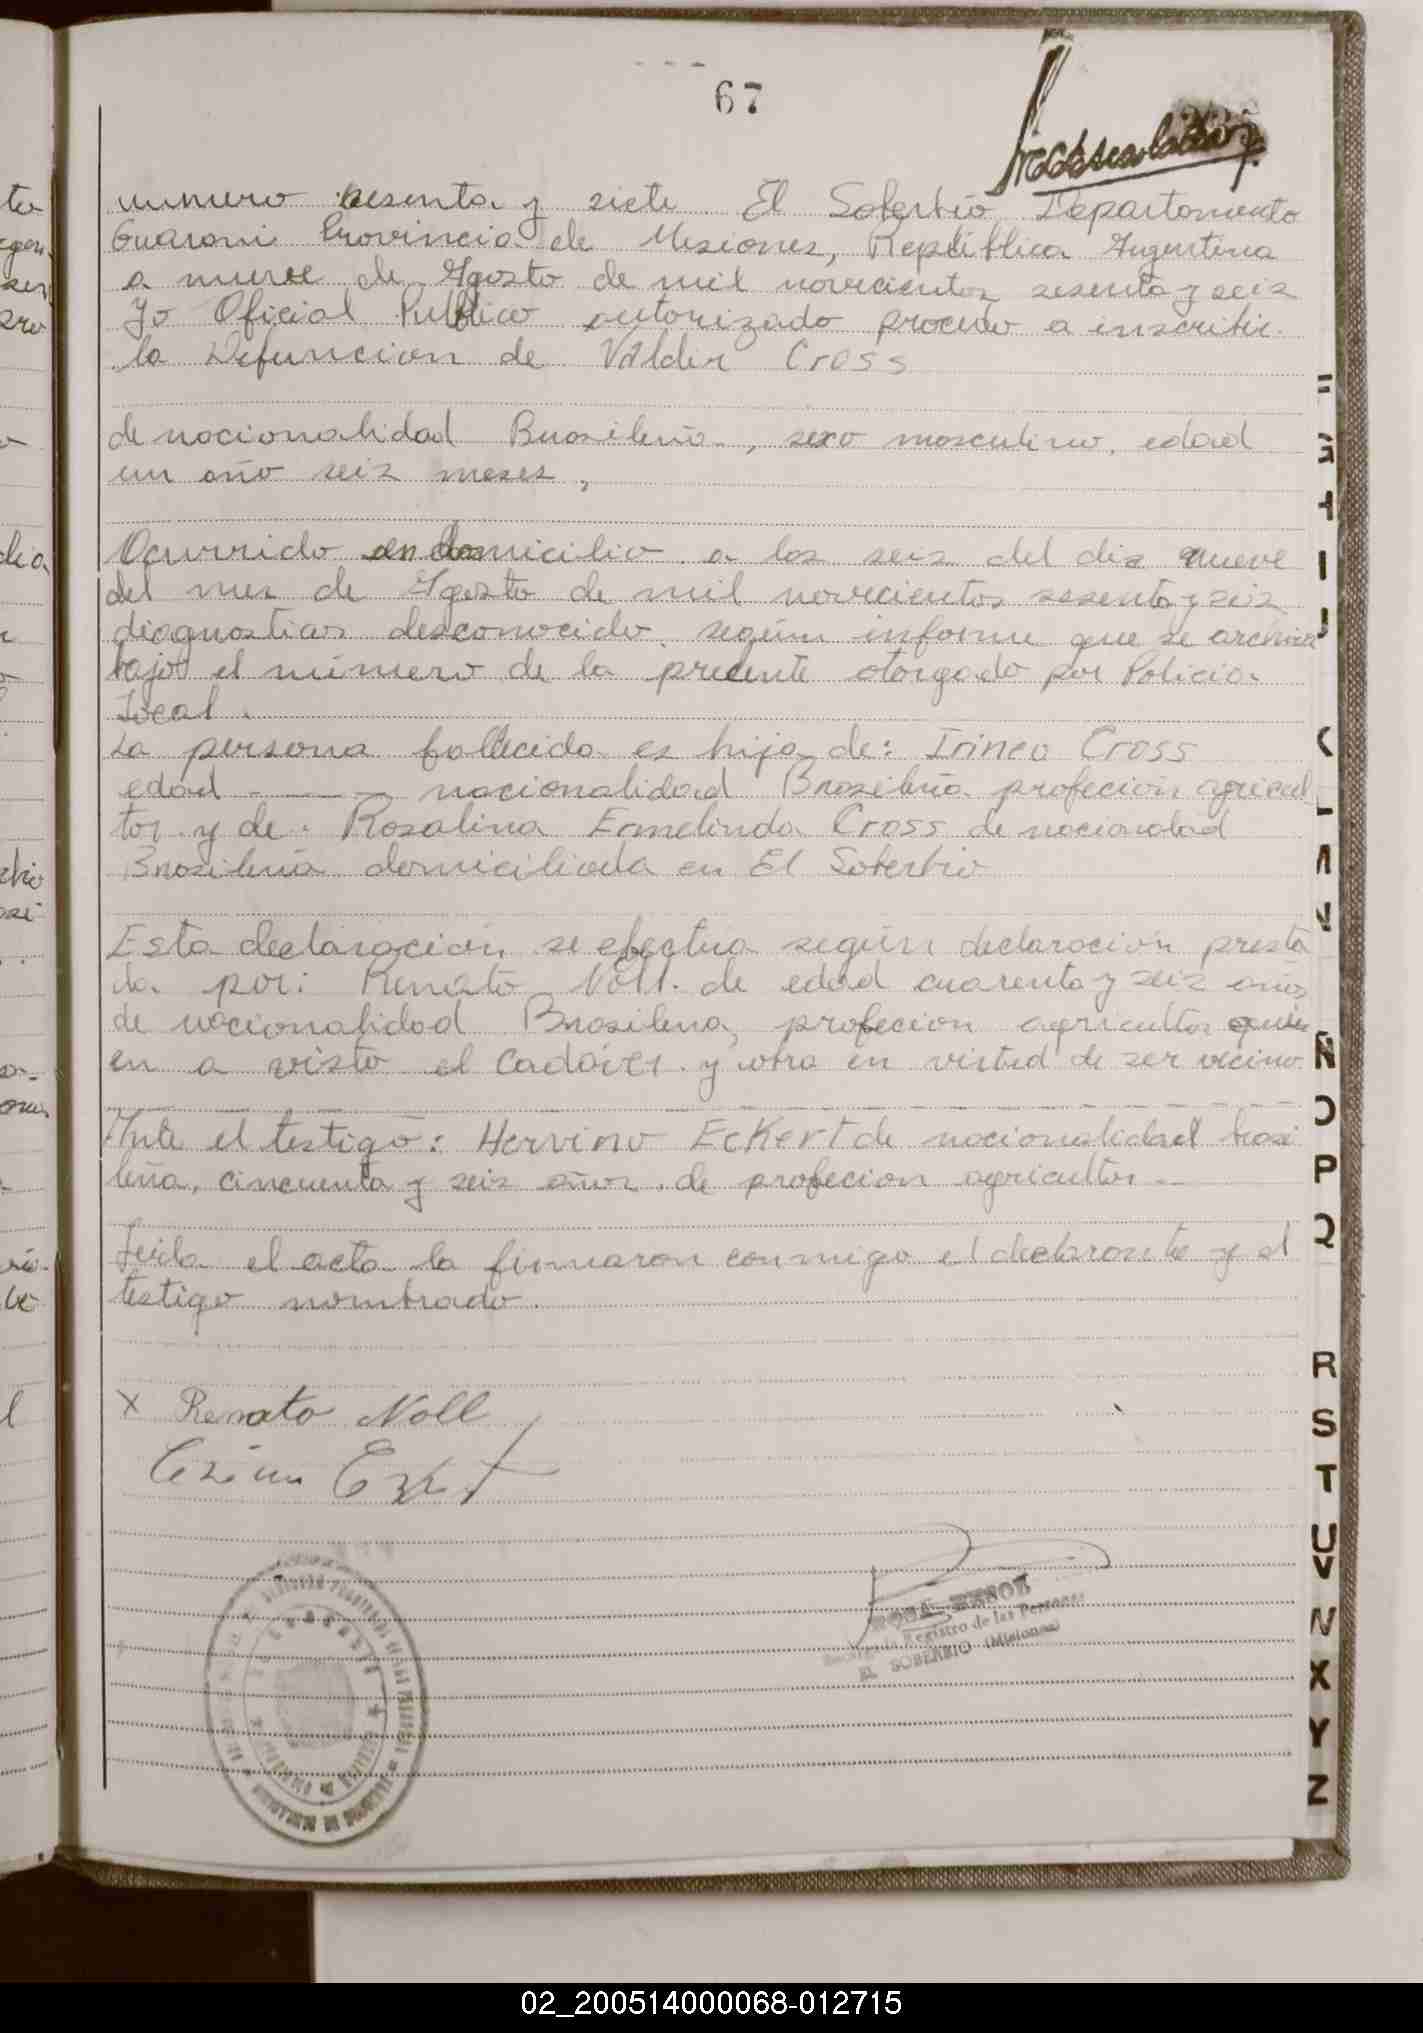 67
numero sesenta y siete El Soberbio Departamento
Guarani Provincia de Misiones, Republica Argentina
a nueve de Agosto de mil novecientos sesenta y seis
Yo Oficial Publico autorizado procedo a inscribir
la Defuncion de Valdir Cross
de nacionalidad Brasileña, sexo masculino, edad
un año seis meses,
Ocurrido en domicilio a las seis del dia nueve
del mes de Agosto de mil novecientos sesenta y seis
diagnostico desconocido según informe que se archiva
bajo el número de la precente otorgado por Policia
Local.
La persona fallecida es hijo de: Irineo Cross
edad - - - nacionalidad Brasileña profecion agricul
tor y de Rosalina Ermelinda Cross de nacionalidad
Brasileña domiciliada en El Soberbio
Esta declaración se efectua según declaración presta
da por: Renato Noll. de edad cuarenta y seis años
de nacionalidad Brasilena, profecion agricultor quien
en a visto el cadáver y obra en virtud de ser vecino
Ante el testigo: Hervino Eckert de nacionalidad brasi
leña, cincuenta y seis años. de profecion agricultor
Leida el acta la firmaron conmigo el declarante y el
testigo nombrado.
x Renato Noll
Registro de las Personas
EL SOBERBIO (Misiones)
F
G
H
I
J
K
L
M
N
Ñ
O
P
Q
R
S
T
U
V
W
X
Y
Z
02_200514000068-012715